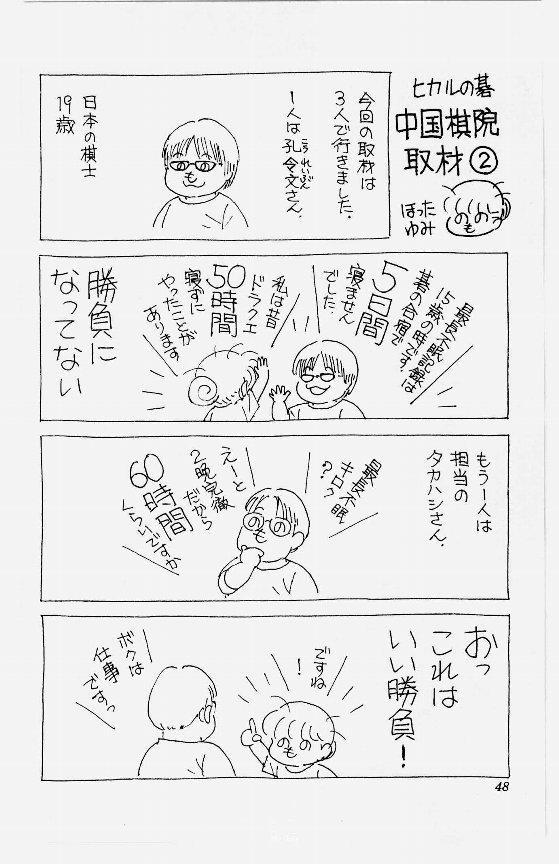 ヒカルの碁
中国棋院
取材②
ほった
ゆみ
今回の取材は
3人で行きました。
1人は孔令文さん。
こうれいぶん
日本の棋士
19歳
最長不眠記録は
15歳の時です。
碁の合宿で
5日間
寝ません
でした
私は昔
ドラクエ
50時間
寝ずに
やったことが
あります
勝負に
なってない
もう一人は
担当の
タカハシさん。
最長不眠
キロク
?
えーと
2晩完徹
だから
60時間
くらいですか
おっ
これは
いい勝負!
ですね
!
ボクは
仕事
ですっ
48